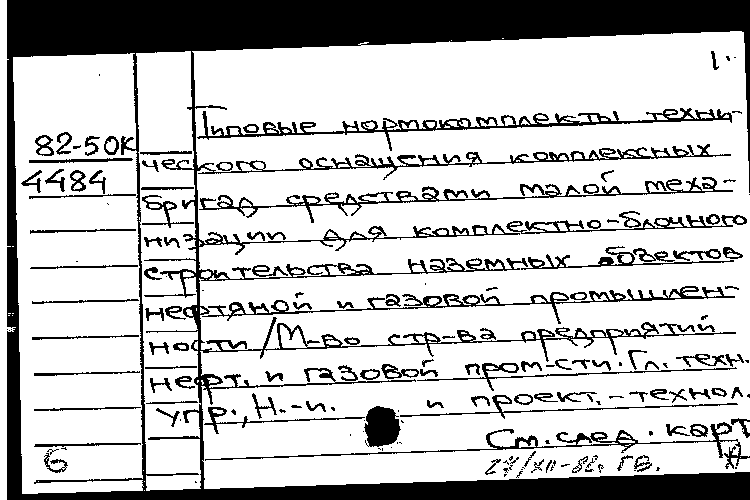 1.
Типовые нормокомплекты техни-
82-50К
ческого оснащения комплексных
4484
бригад средствами малой меха-
низации для комплектно-блочного
строительства наземных объектов
нефтяной и газовой промышлен-
ности /М-во стр-ва предприятий
нефт. и газовой пром-сти. Гл. техн.
упр., Н.-и. и проект.-технол.
См. след. карт
6
27/XII-82г. ГВ.